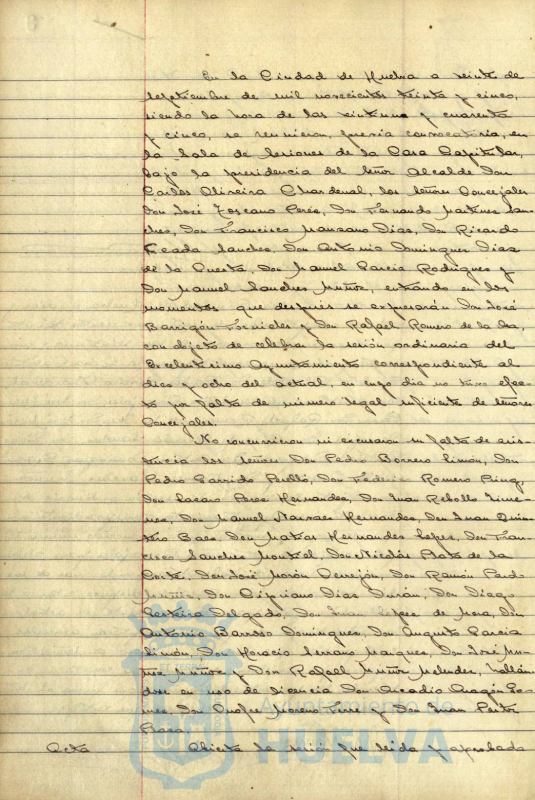 En la Ciudad de Huelva a veinte de
Septiembre de mil novecientos treinta y cinco,
siendo la hora de las veintiuna y cuarenta
y cinco, se reunieron, previa convocatoria, en
la Sala de Sesiones de la Casa Capitular,
bajo la presidencia del Señor Alcalde Don
Carlos Oliveira Chardenal, los Señores Concejales
Don José Toscano Perez, Don Fernando Martinez San-
chez, Don Francisco Manzano Dias, Don Ricardo
Terada Sanchez, Don Antonio Dominguez Diaz
de la Cuesta, Don Manuel Garcia Rodriguez y
Don Manuel Sanchez Muñoz, entrando en los
momentos que después se expresarán Don José
Barrigón Fornieles y Don Rafael Romero de la
con objeto de celebrar la sesión ordinaria del
Excelentisimo Ayuntamiento correspondiente al
dies y ocho del actual, en cuyo dia no tuvo efec-
to por falta de número legal suficiente de Señores
Concejales.
No concurrieron ni excusaron su falta de asis-
tencia los Señores Don Pedro Borrero Limón, Don
Pedro Garrido Perelló, Don Federico Romero
Don Lazaro Perez Hernandez, Don Juan Rebollo Jime-
nez, Don Manuel Narvaez Hernandez, Don Juan Quin-
tero Baez Don Matias Hernandez Lopez, Don Fran-
cisco Sanchez Montiel, Don Nicolás Prats de la
Corte, Don José Morón Cerrejón, Don Ramón Pardo
Muñiz, Don Cipriano Dias Durán, Don Diego
Delgado, Don Juan Lopez de Mora, Don
Antonio Barroso Dominguez, Don Augusto Garcia
Limón, Don Horacio Serrano Marquez, Don José Mu-
ñoz Muñoz y Don Rafael Muñoz Melendez, hallán-
dose en uso de licencia Don Arcadio Aragón Go-
mez, Don Onofre Moreno Torre y Don Juan

Acta Abierta la sesión fué leida y aprobada
Ayuntamiento de
HUELVA